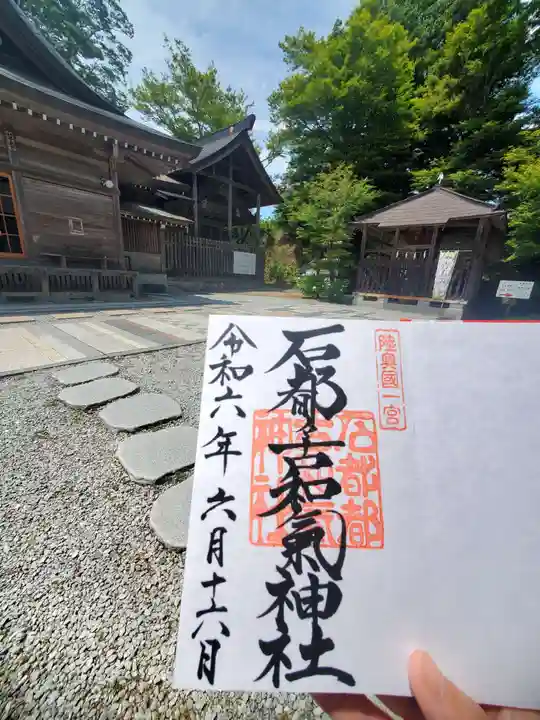 陸奥國一宮
石都々古和氣神社
石都都
神社
令和六年六月十六日